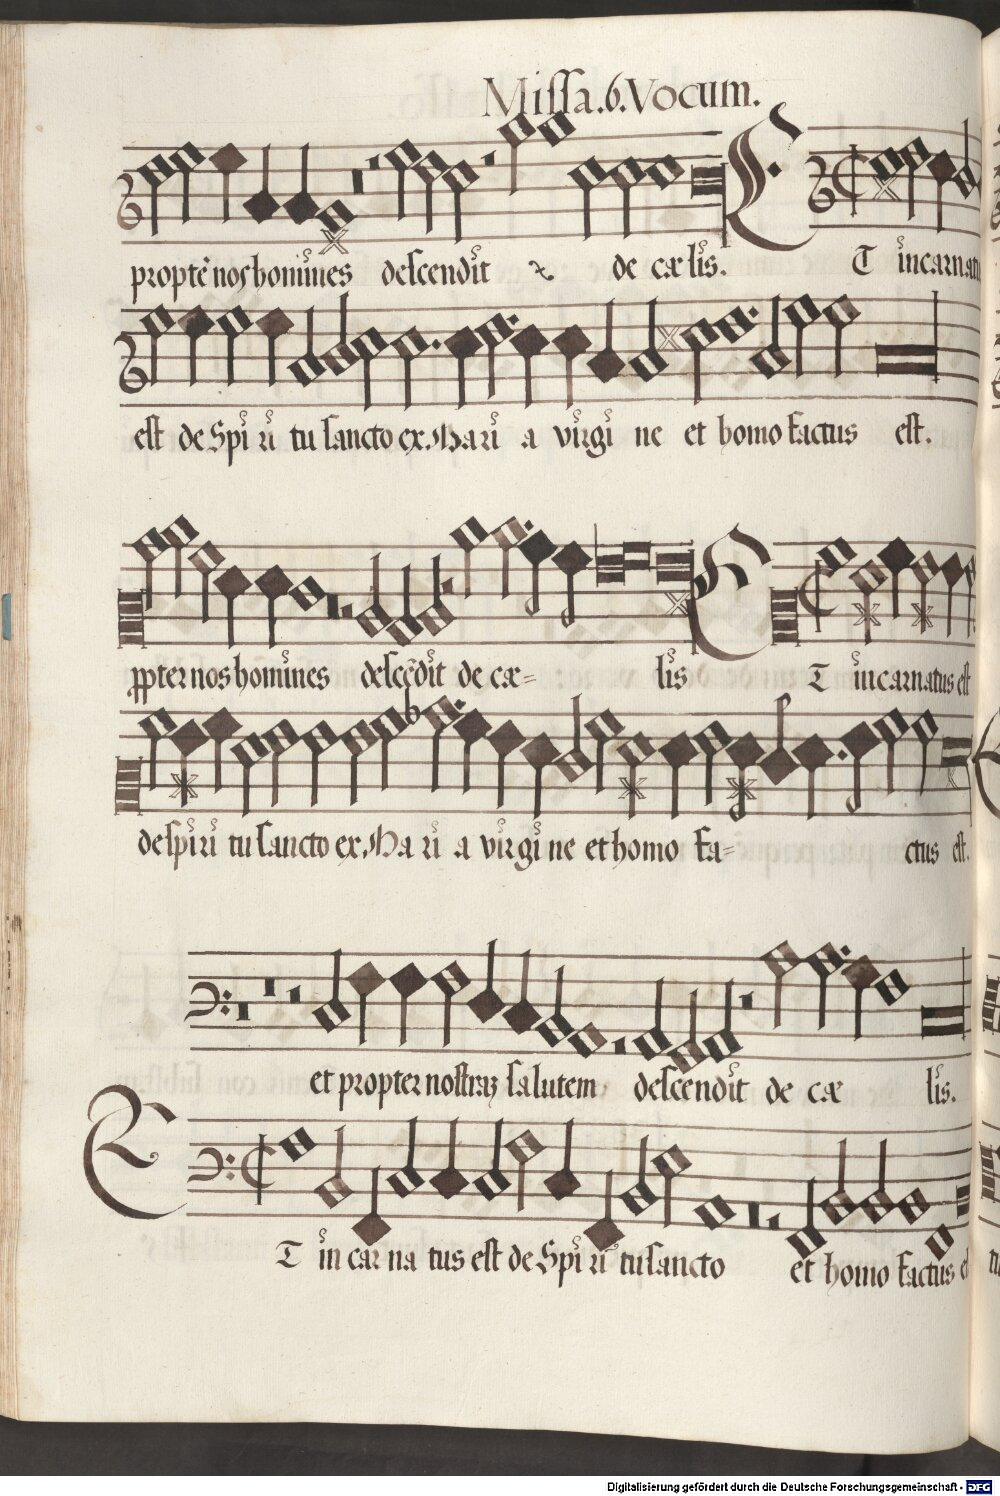 Missa.6.Vocum.
propte᷑ nos homines descendit de cælis. T incarnatu
est de Spi ri tu sancto ex Mari a virgi ne et homo factus est.
ppter nos homines descēdit de cæ= lis T incarnatus est
de spiri tu sancto ex Ma ri a virgi ne et homo fa= ctus est.
et propter nostraꝫ salutem descendit de cæ lis.
T in car na tus est de Spi ri tu sancto et homo factus e
Digitalisierung gefördert durch die Deutsche Forschungsgemeinschaft - DFG